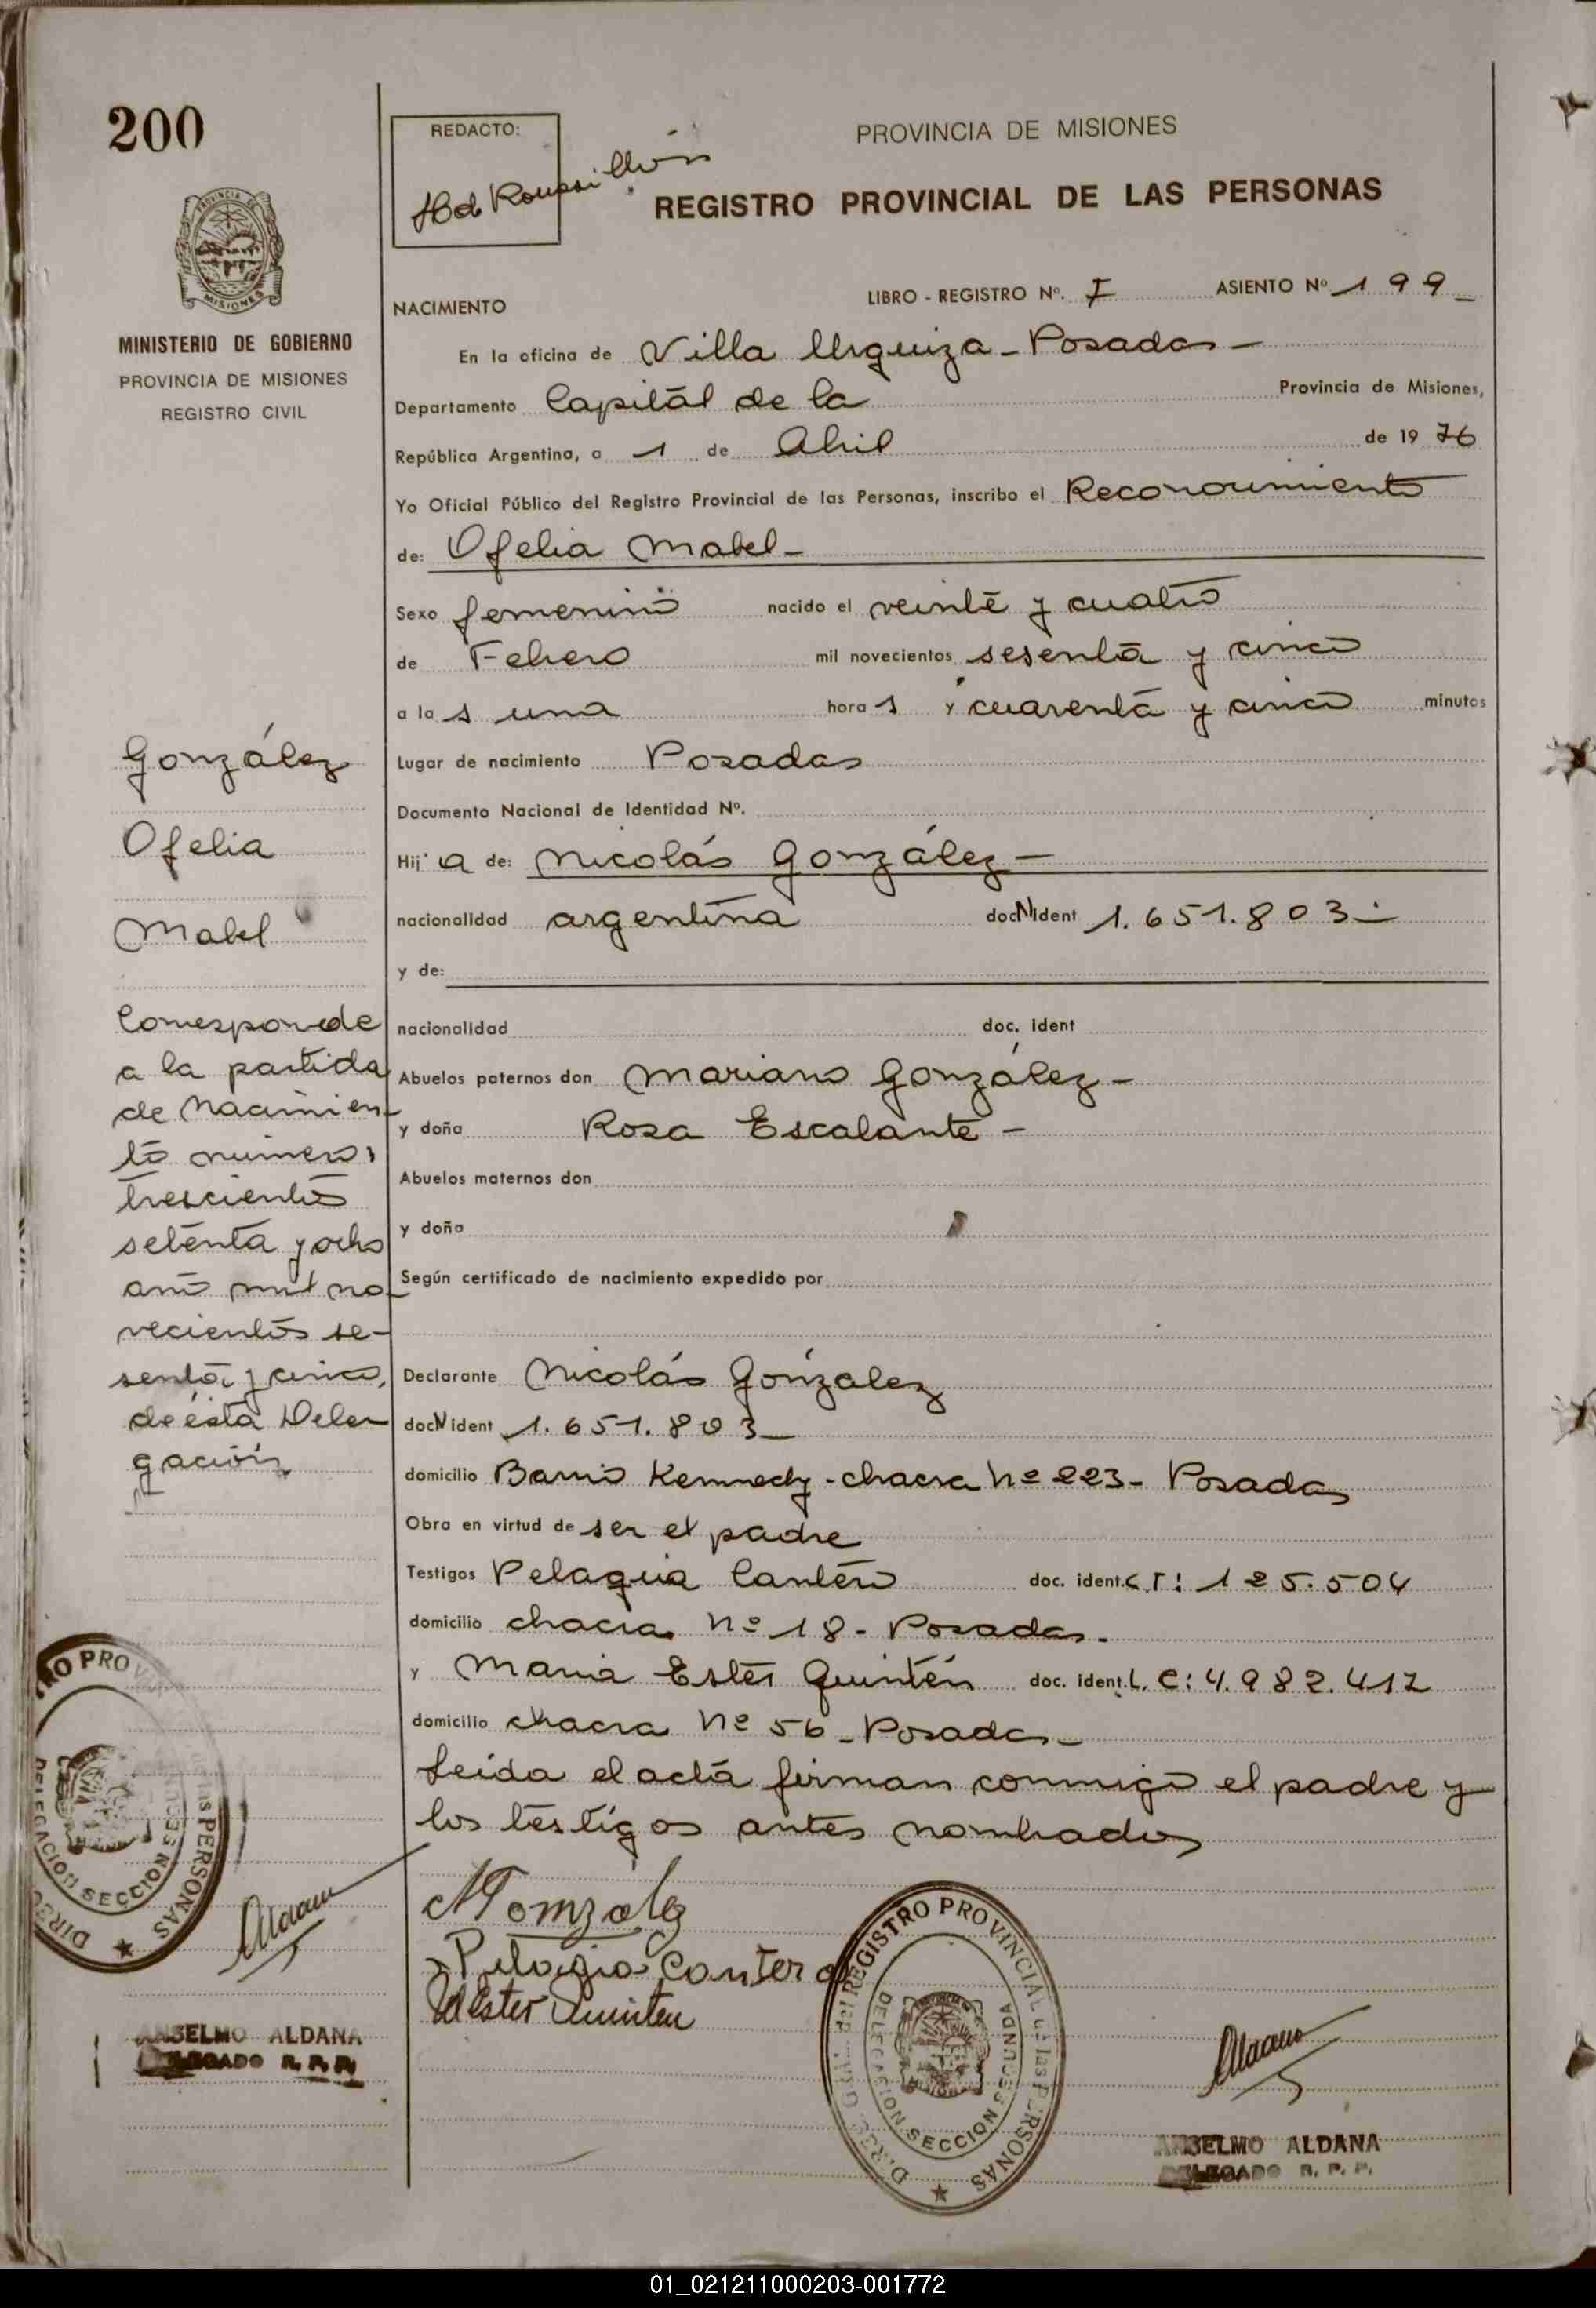 200
REDACTO:
PROVINCIA DE MISIONES
REGISTRO PROVINCIAL DE LAS PERSONAS
PROVINCIA DE
MISIONES
MINISTERIO DE GOBIERNO
PROVINCIA DE MISIONES
REGISTRO CIVIL
NACIMIENTO
LIBRO - REGISTRO Nº. I ASIENTO Nº 199_
En la oficina de Villa Urquiza - Posadas -
Departamento Capitál de la Provincia de Misiones,
República Argentina, a 1 de Abril de 1976
Yo Oficial Público del Registro Provincial de las Personas, inscribo el Reconocimiento
de: Ofelia Mabel -
Sexo femenino nacido el veinte y cuatro
de Febrero mil novecientos sesenta y cinco
a la s una hora s y cuarenta y cinco minutos
Lugar de nacimiento Posadas
Documento Nacional de Identidad Nº.
Hij a de: Nicolás González -
nacionalidad argentina doc N ident 1.651.803 -
y de:
nacionalidad doc. ident
Abuelos paternos don Mariano González -
y doña Rosa Escalante -
Abuelos maternos don
y doña
Según certificado de nacimiento expedido por
Declarante Nicolás González
doc N ident 1.651.803_
domicilio Barrio Kennedy - chacra Nº 223 - Posadas
Obra en virtud de ser el padre
Testigos Pelagia Cantero doc. ident. C.I: 125.504
domicilio chacra Nº 18 - Posadas.
y Maria Ester Quintén doc. ident. L.C: 4.982.417
domicilio chacra Nº 56 - Posadas -
Leida el acta firman conmigo el padre y
los testigos antes nombrados
González
Ofelia
Mabel
Corresponde
a la partida
de Nacimien-
to número:
trescientos
setenta y ocho
año mil no-
vecientos se-
senta y cinco,
de ésta Dele-
gación
NGonzález
Pelagia Cantero
MEster Quinten
REGISTRO PROVINCIAL de las PERSONAS
DELEGACION SECCION SEGUNDA
ANSELMO ALDANA
DELEGADO R. P. P.
ANSELMO ALDANA
DELEGADO R. P. P.
01_021211000203-001772